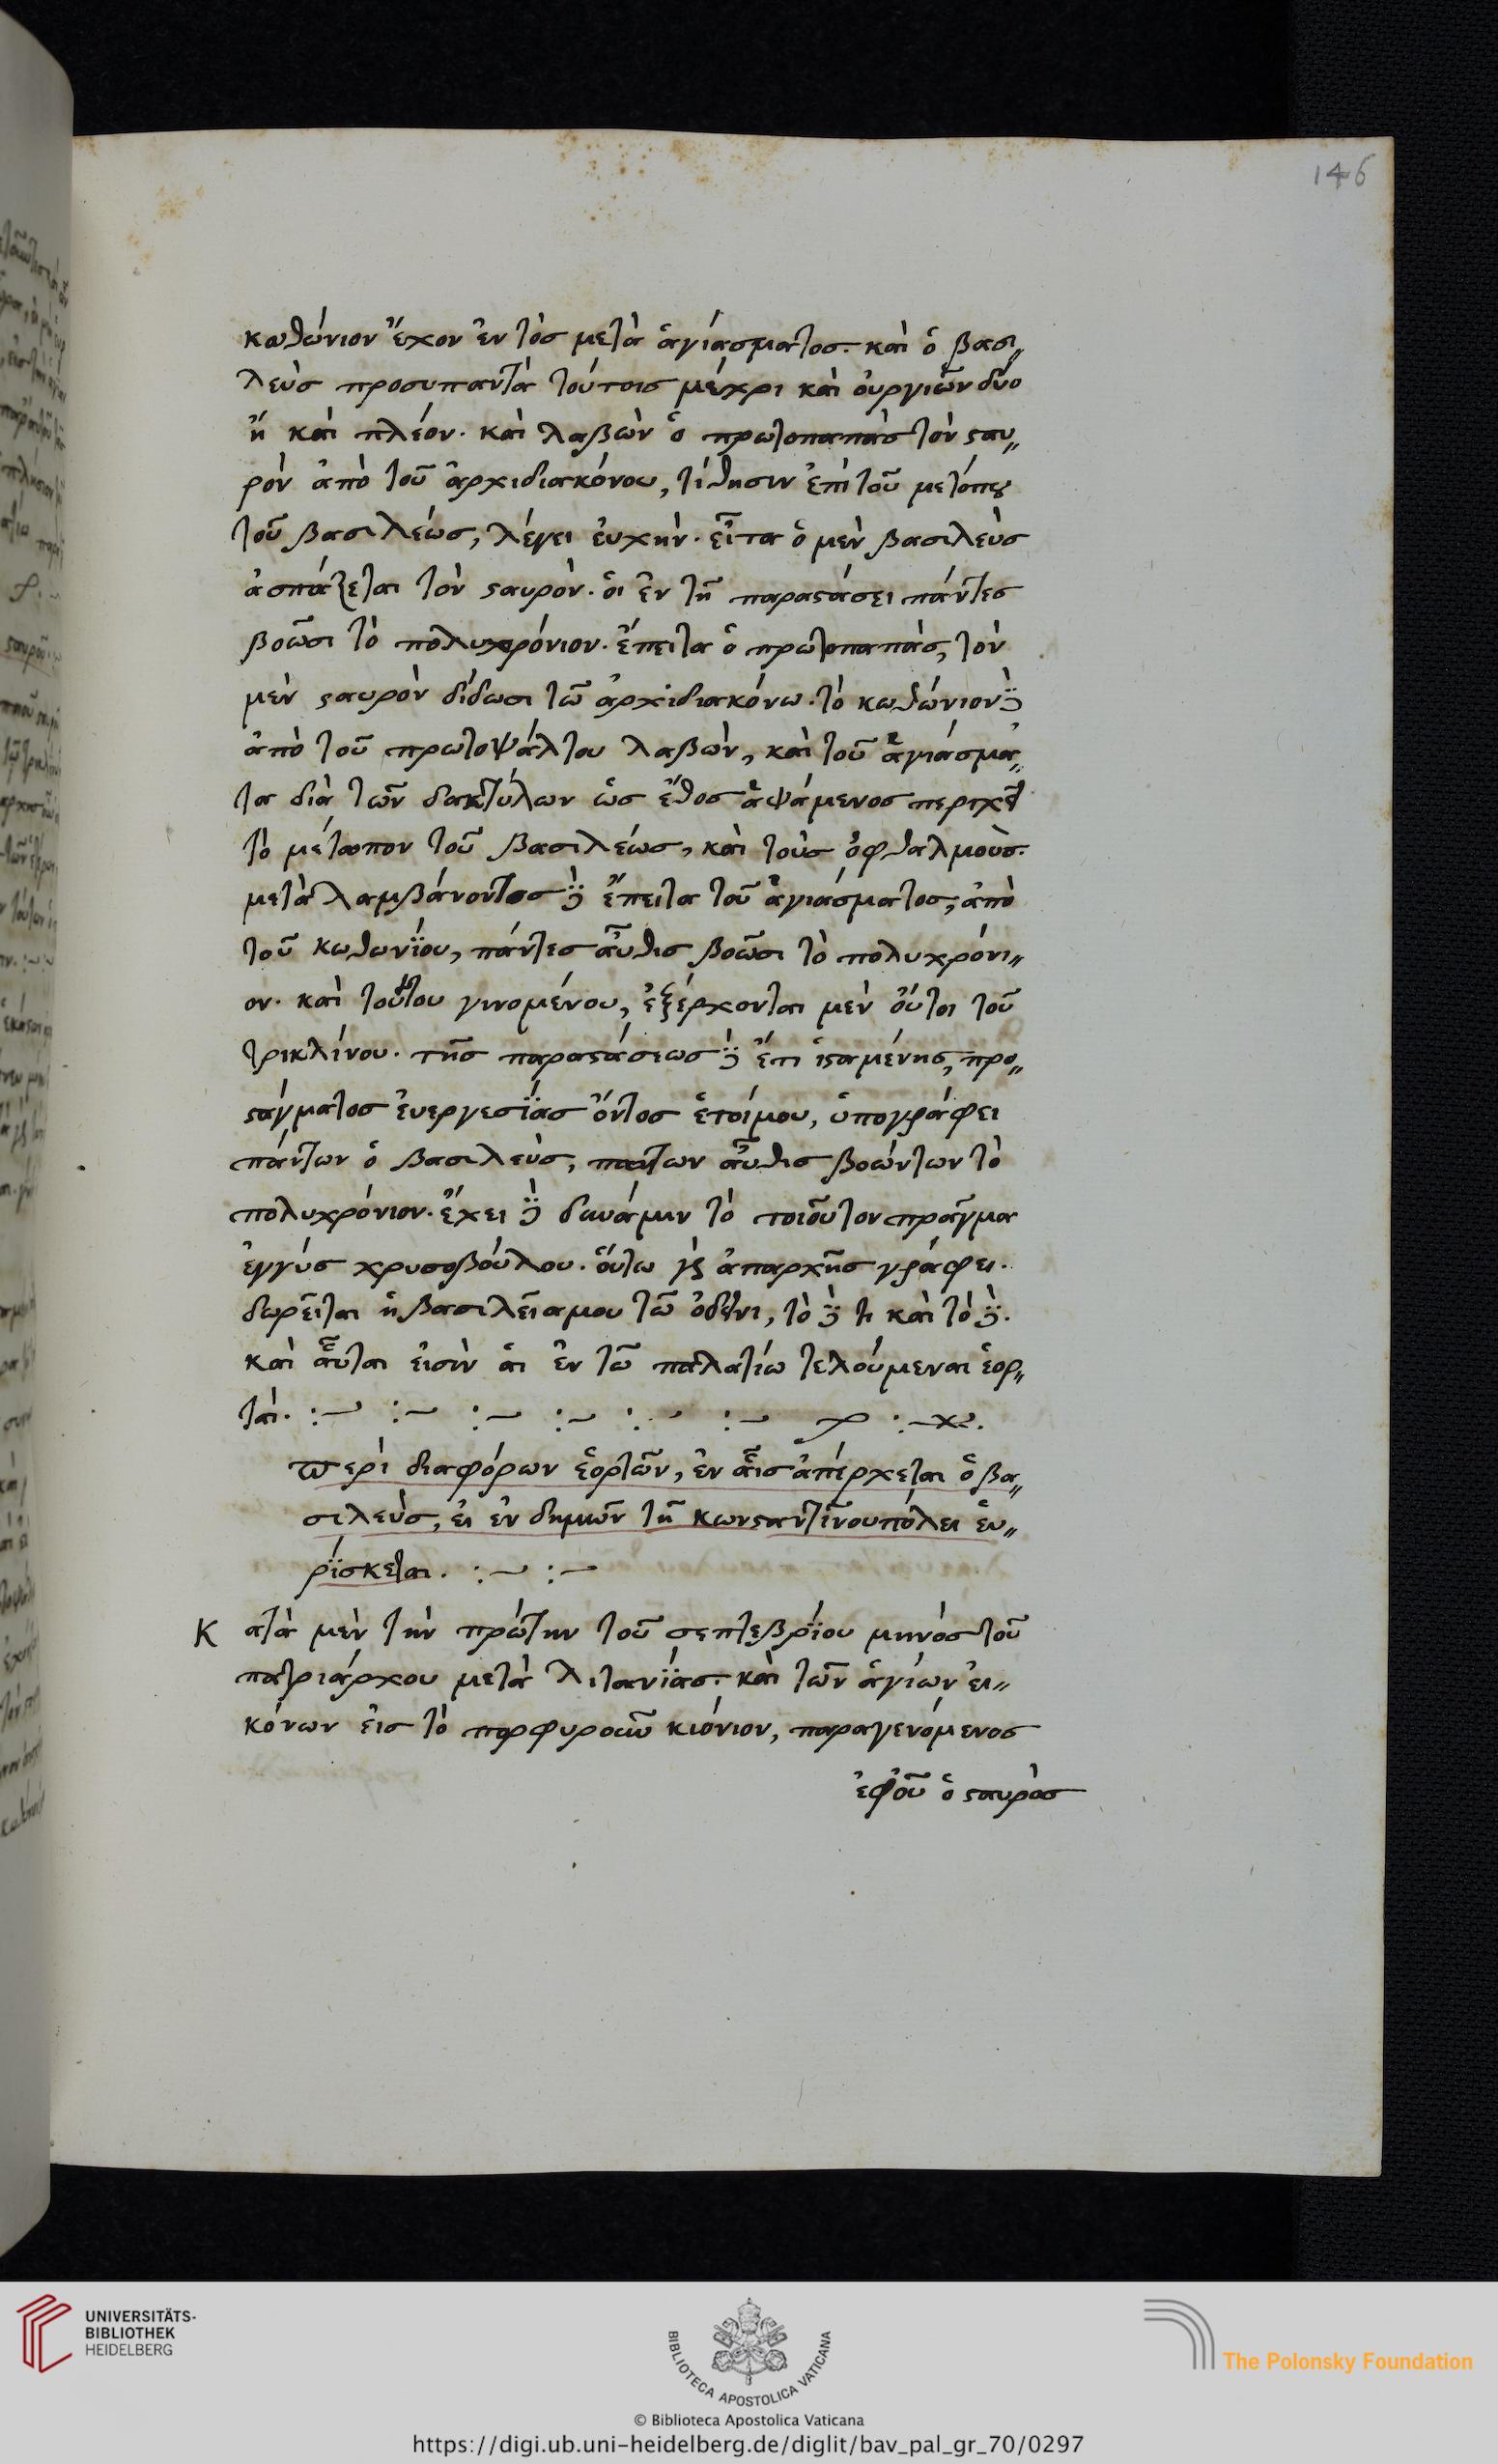 146
κωθώνιον ἔχον ἐν τὸσ μετὰ ἁγιάσματοσ. καὶ ὁ βασι〃
λεὺσ προσυπαντᾶ τούτοισ μέχρι καὶ οὐργιῶν δύο
ἢ καὶ πλέον. καὶ λαβὼν ὁ πρωτοπαπὰσ τὸν ϛαυ〃
ρὸν ἀπὸ τοῦ ἀρχιδιακόνου, τίθησιν ἐπὶ τοῦ μετόπου
τοῦ βασιλέωσ, λέγει ἐυχὴν. εἶτα ὁ μὲν βασιλεὺσ
ἀσπάζεται τὸν ϛαυρὸν. ὁι ἐν τῆ παραϛάσει πάντεσ
βοῶσι τὸ πολυχρόνιον. ἔπειτα ὁ πρωτοπαπὰσ, τὸν
μὲν ϛαυρὸν δίδωσι τῶ ἀρχιδιακόνω. τὸ κωθώνιον δὲ
ἀπὸ τοῦ πρωτοψάλτου λαβὼν, καὶ τοῦ ἁγιάσμα〃
τα διὰ τῶν δακτύλων ὡσ ἔθοσ ἁψάμενοσ περιχεῖ
τὸ μέτωπον τοῦ βασιλέωσ, καὶ τοὺσ ὀφθαλμοὺσ.
μεταλαμβάνοντοσ δὲ ἔπειτα τοῦ ἁγιάσματοσ, ἀπὸ
τοῦ κωθωνίου, πάντεσ αὖθισ βοῶσι τὸ πολυχρόνι〃
ον. καὶ τούτου γινομένου, ἐξέρχονται μὲν οὗτοι τοῦ
τρικλίνου. τῆσ παραϛάσεωσ δὲ ἔτι ἱϛαμένησ, προ〃
ϛάγματοσ ἐυεργεσίασ ὄντοσ ἑτοίμου, ὑπογράφει
πάντων ὁ βασιλεὺσ, πάντων αὖθισ βοώντων τὸ
πολυχρόνιον. ἔχει δὲ δυνάμιν τὸ τοιοῦτον πρᾶγμα
ἐγγὺσ χρυσοβούλου. οὕτω γὰρ ἀπαρχῆσ γράφει.
δωρεῖται ἡ βασιλεία μου τῶ ὁδεῖνι, τὸ δὲ τι καὶ τὸ δὲ.
καὶ αὗται εἰσὶν ἁι ἐν τῶ παλατίω τελούμεναι ἑορ〃
ταὶ.
περὶ διαφόρων ἑορτῶν, ἐν αἷσ ἀπέρχεται ὁ βα〃
σιλεὺσ, ἐι ἐνδημῶν τῆ κωνϛαντινουπόλει ἑυ〃
ρίσκεται.
Κατὰ μὲν τὴν πρώτην τοῦ σεπτεβρίου μηνὸσ τοῦ
πατριάρχου μετὰ λιτανίασ. καὶ τῶν ἁγίων ἐι〃
κόνων ἐισ τὸ πορφυροῦν κιόνιον, παραγενόμενοσ
ἐφοῦ ὁ ϛαυρὸσ
UNIVERSITÄTS-
BIBLIOTHEK
HEIDELBERG
BIBLIOTECA APOSTOLICA VATICANA
The Polonsky Foundation
© Biblioteca Apostolica Vaticana
https://digi.ub.uni-heidelberg.de/diglit/bav_pal_gr_70/0297